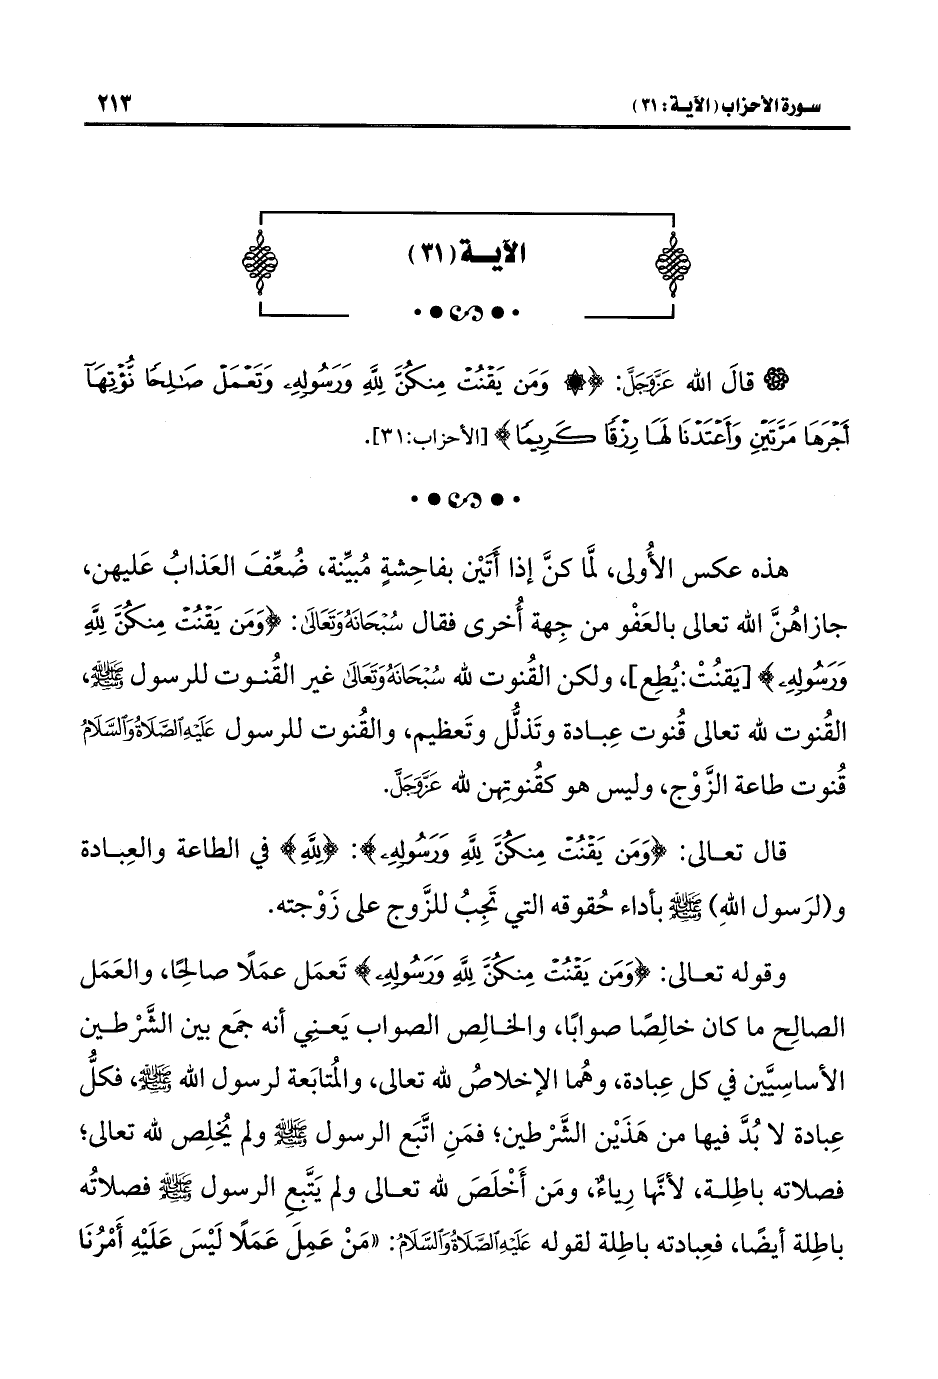 سورة الأحزاب (الآية: ٣١) ٢١٣
الآيـة (٣١)
قالَ الله عَزَّوَجَلَّ: ﴿۞ وَمَن يَقْنُتْ مِنكُنَّ لِلَّهِ وَرَسُولِهِۦ وَتَعْمَلْ صَٰلِحًا نُّؤْتِهَآ
أَجْرَهَا مَرَّتَيْنِ وَأَعْتَدْنَا لَهَا رِزْقًا كَرِيمًا﴾ [الأحزاب:٣١].
هذه عكس الأُولى، لمَّا كنَّ إذا أَتَيْن بفاحِشةٍ مُبيِّنة، ضُعِّفَ العَذابُ عَليهن،
جازاهُنَّ الله تعالى بالعَفْو من جِهة أُخرى فقال سُبْحَانَهُ وَتَعَالَى: ﴿وَمَن يَقْنُتْ مِنكُنَّ لِلَّهِ
وَرَسُولِهِۦ﴾ [يَقنُتْ: يُطِع]، ولكن القُنوت لله سُبْحَانَهُ وَتَعَالَى غير القُنوت للرسول ﷺ،
القُنوت لله تعالى قُنوت عِبادة وتَذلُّل وتَعظيم، والقُنوت للرسول عَلَيْهِ الصَّلَاةُ وَالسَّلَامُ
قُنوت طاعة الزَّوْج، وليس هو كقُنوتِهن لله عَزَّوَجَلَّ.
قال تعالى: ﴿وَمَن يَقْنُتْ مِنكُنَّ لِلَّهِ وَرَسُولِهِۦ﴾: ﴿لِلَّهِ﴾ في الطاعة والعِبادة
و(لرَسول اللهِ) ﷺ بأداء حُقوقه التي تَجِبُ للزَّوج على زَوْجته.
وقوله تعالى: ﴿وَمَن يَقْنُتْ مِنكُنَّ لِلَّهِ وَرَسُولِهِۦ﴾ تَعمَل عملًا صالحًا، والعَمَل
الصالِح ما كان خالِصًا صوابًا، والخالِص الصواب يَعنِي أنه جمَع بين الشَّرْطين
الأساسِيَّين في كل عِبادة، وهُما الإخلاصُ لله تعالى، والمُتابَعة لرسول الله ﷺ، فكلُّ
عِبادة لا بُدَّ فيها من هَذَيْن الشَّرْطين؛ فمَنِ اتَّبَع الرسول ﷺ ولم يُخلِص لله تعالى؛
فصلاته باطِلة، لأنَّها رِياءٌ، ومَن أَخْلَصَ لله تعالى ولم يَتَّبِعِ الرسول ﷺ فصلاتُه
باطِلة أيضًا، فعِبادته باطِلة لقوله عَلَيْهِ الصَّلَاةُ وَالسَّلَامُ: «مَنْ عَمِلَ عَمَلًا لَيْسَ عَلَيْهِ أَمْرُنَا